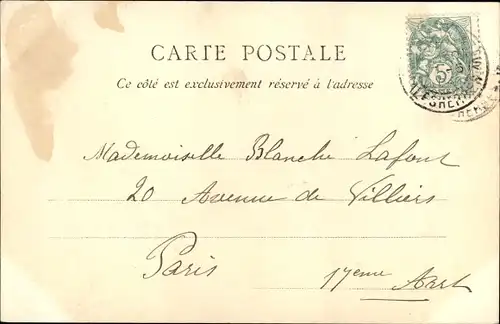 CARTE POSTALE
Ce côté est exclusivement réservé à l'adresse
5
Mademoiselle Blanche Lafont
20 Avenue de Villiers
Paris
17eme Arrt